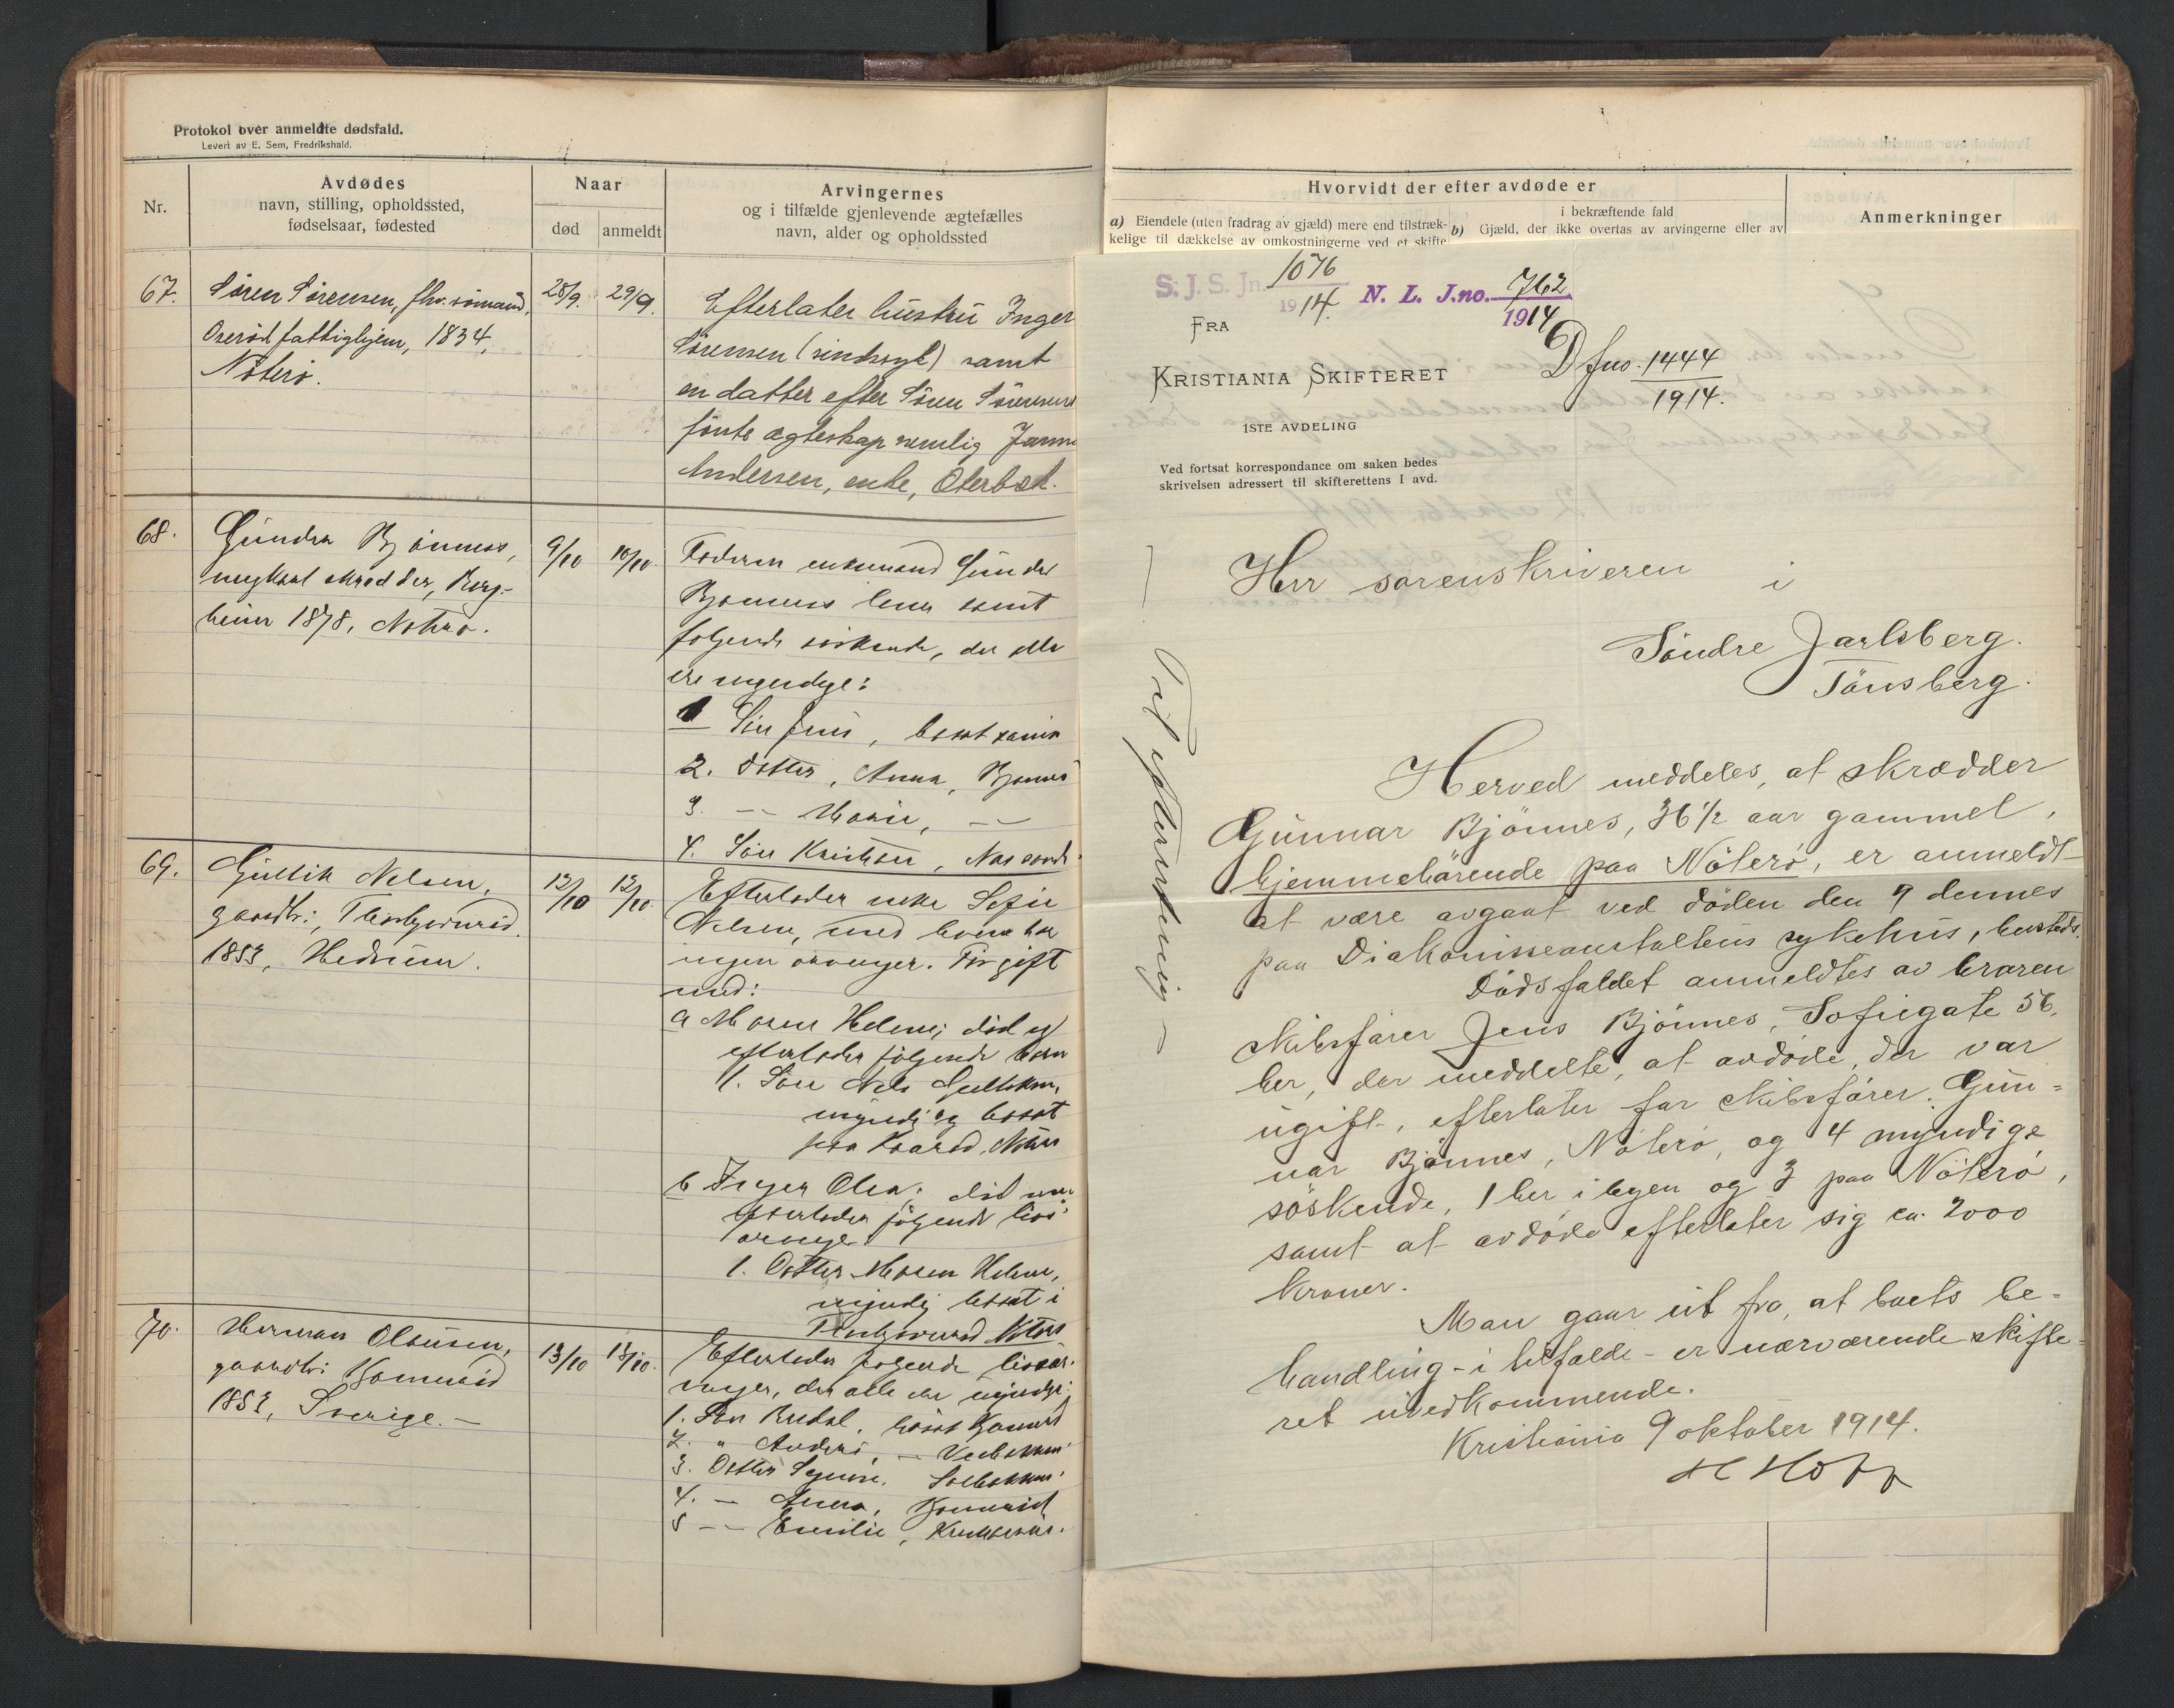 Protokol over anmeldte dødsfald.
Levert av E. Sem, Fredrikshald.
Nr.
Avdødes
navn, stilling, opholdssted,
fødselsaar, fødested
Naar
død
anmeldt
Arvingernes
og i tilfælde gjenlevende ægtefælles
navn, alder og opholdssted
67.
Sören Sörensen, fhv. sömand,
Oserød fattighjem, 1834,
Nöterö.
28/9.
29/9.
Efterlater hustru Inger
Sörensen (sindssyk) samt
en datter efter Sören Sörensens
förste ægteskap nemlig
Andersen, enke,
68.
Gunder Bjönness,
ungkarl skrædder, Berg-
heim 1878, Nöterö.
9/10
10/10.
Faderen enkemand Gunder
Bjönness lever samt
følgende söskende, der alle
ere myndige:
1 Sön Jens, bosat
2. Datter, Anna, Bjönnes
3. — Marie, —
4. Sön Kristian,
69.
Gullik Nelsen,
gaardbr.,
1853, Hedrum.
12/10
12/10.
Efterlader enke Sofie
Nelsen, med hvem har
ingen arvinger. För gift
med:
a Maren Helene; död og
efterlader fölgende barn
1. Sön Nels Gulliksen,
myndig og bosat
paa
b Inger Olea; död
efterlader fölgende livs-
arvinger
1. Datter Maren Helene,
myndig bosat i
70.
Herman Olausen,
gaardbr.
1853, Sverige. —
13/10
Efterlader følgende livsar-
vinger, der alle er myndige:
1. Sön
2. " Anders, —
3. Datter
4. — Anna,
5 — Emilie,
Hvorvidt der efter avdøde er
a) Eiendele (uten fradrag av gjæld) mere end tilstræk-
kelige til dækkelse av omkostningerne ved et skifte
i bekræftende fald
b) Gjæld, der ikke overtas av arvingerne eller av
Anmerkninger
S. J. S. Jn. 1076
1914.
N. L. J.no. 762
1914
D Jno. 1444
1914.
FRA
KRISTIANIA SKIFTERET
1STE AVDELING
Ved fortsat korrespondance om saken bedes
skrivelsen adressert til skifterettens I avd.
Herr sorenskriveren i
Söndre Jarlsberg.
Tönsberg.
Herved meddeles, at skrædder
Gunnar Bjönnes, 36 1/2 aar gammel,
hjemmehörende paa Nöterö, er anmeldt
at være avgaat ved döden den 9 dennes
paa Diakonisseanstaltens sykehus, hersteds.
Dödsfaldet anmeldtes av broren
skibsförer Jens Bjönnes, Sofiegate 56,
her, der meddelte, at avdöde, der var
ugift, efterlater far skibsförer Gun-
nar Bjönnes, Nöterö, og 4 myndige
söskende, 1 her i byen og 3 paa Nöterö,
samt at avdöde efterlater sig ca. 2000
kroner.
Man gaar ut fra, at boets be-
handling - i tilfælde - er nærværende skifte-
ret uvedkommende.
Kristiania 9 oktober 1914.